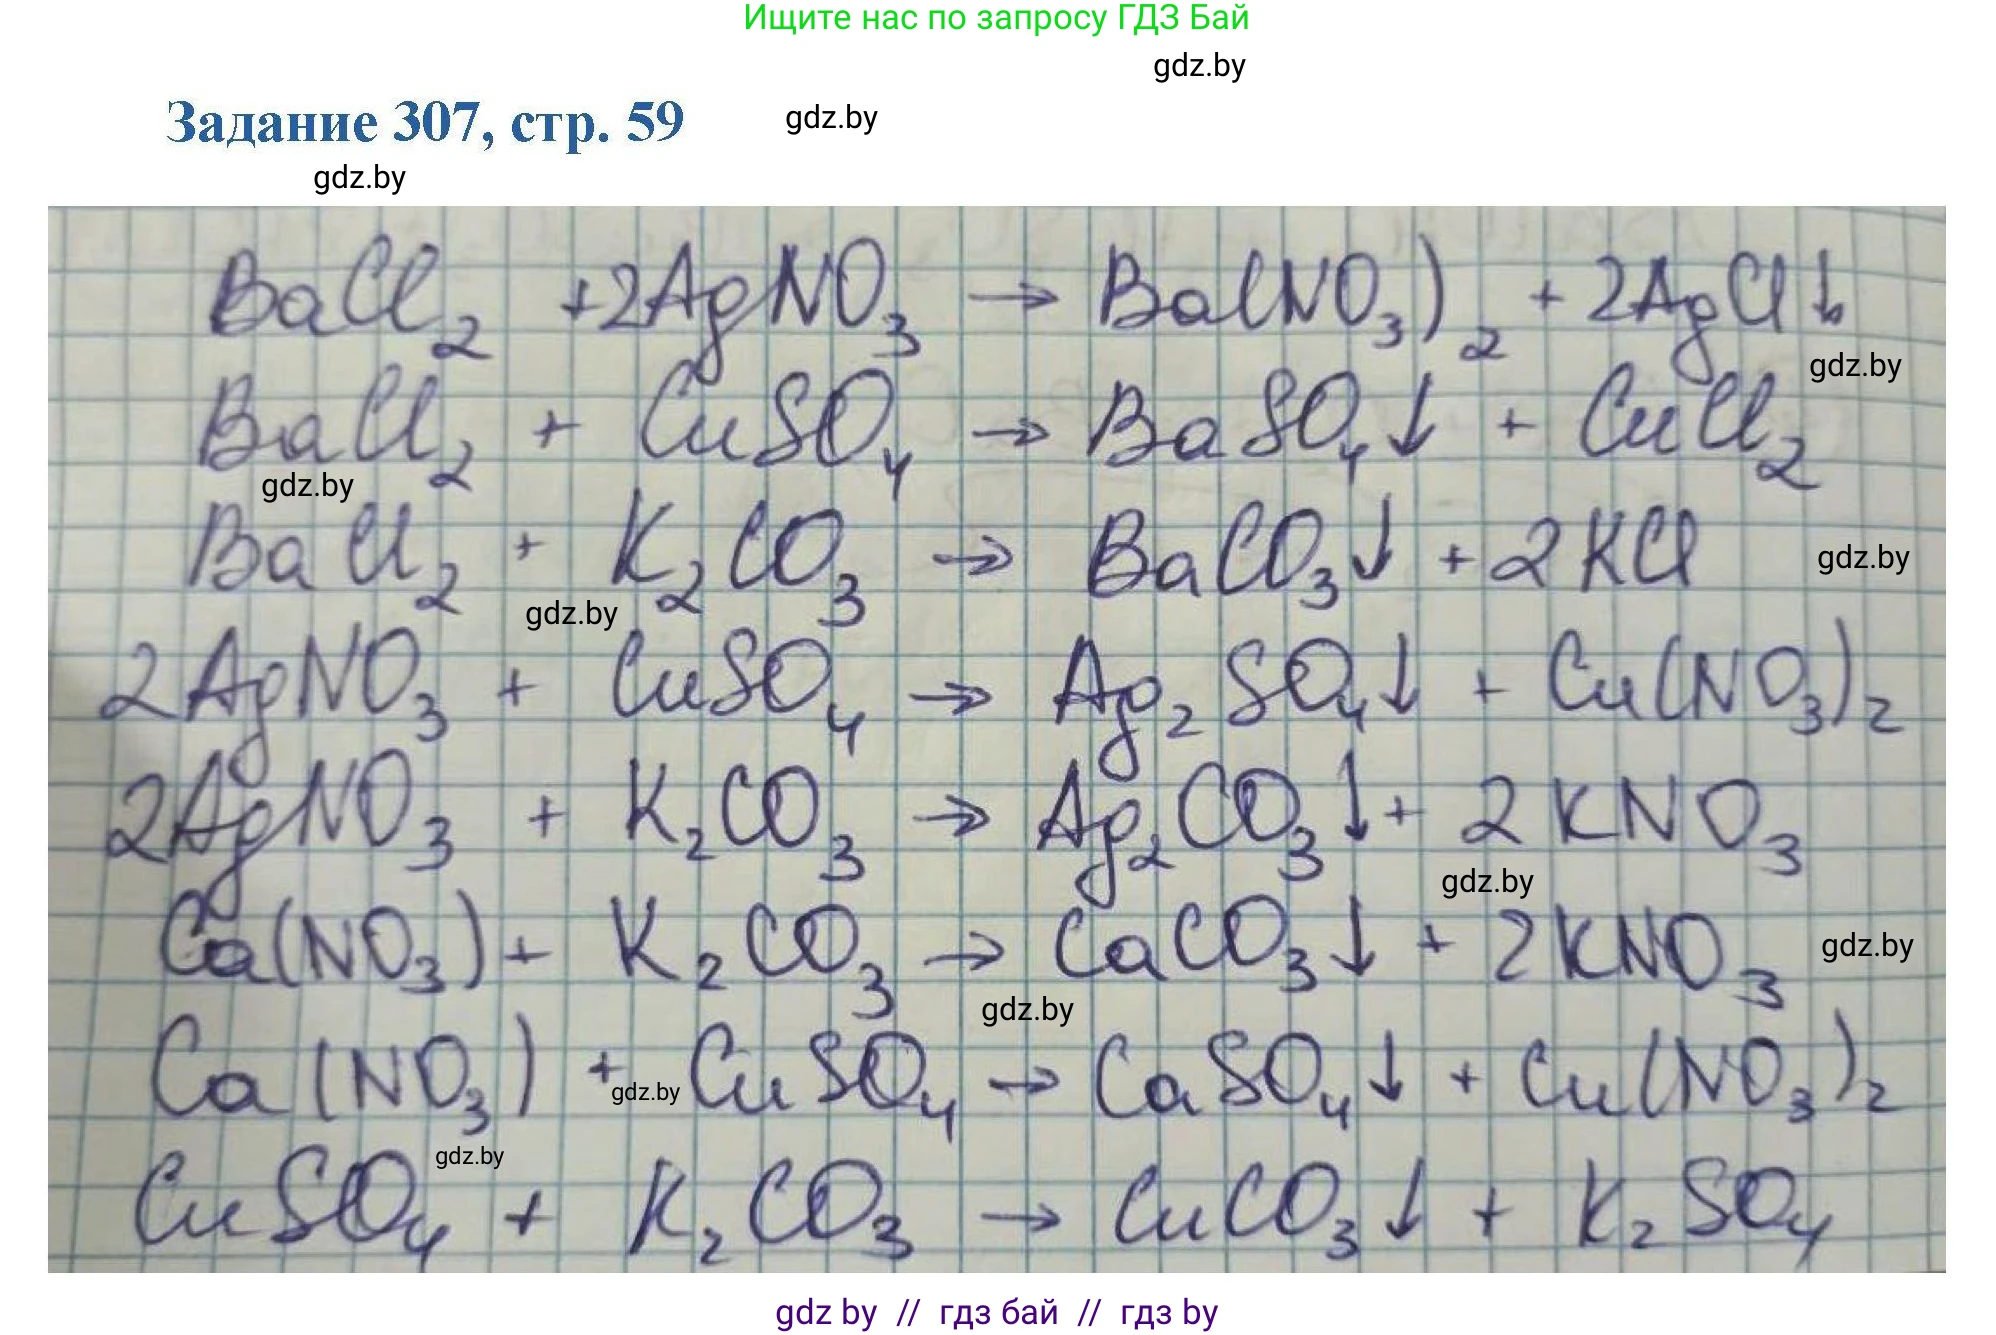 Ищите нас по запросу ГДЗ Бай
gdz.by
Задание 307, стр. 59
gdz.by
gdz.by
BaCl₂ + 2AgNO₃ → Ba(NO₃)₂ + 2AgCl↓
gdz.by
BaCl₂ + CuSO₄ → BaSO₄↓ + CuCl₂
gdz.by
BaCl₂ + K₂CO₃ → BaCO₃↓ + 2KCl
gdz.by
gdz.by
2AgNO₃ + CuSO₄ → Ag₂SO₄↓ + Cu(NO₃)₂
2AgNO₃ + K₂CO₃ → Ag₂CO₃↓ + 2KNO₃
gdz.by
Ca(NO₃) + K₂CO₃ → CaCO₃↓ + 2KNO₃
gdz.by
gdz.by
Ca(NO₃) + CuSO₄ → CaSO₄↓ + Cu(NO₃)₂
gdz.by
gdz.by
CuSO₄ + K₂CO₃ → CuCO₃↓ + K₂SO₄
gdz by // гдз бай // гдз by